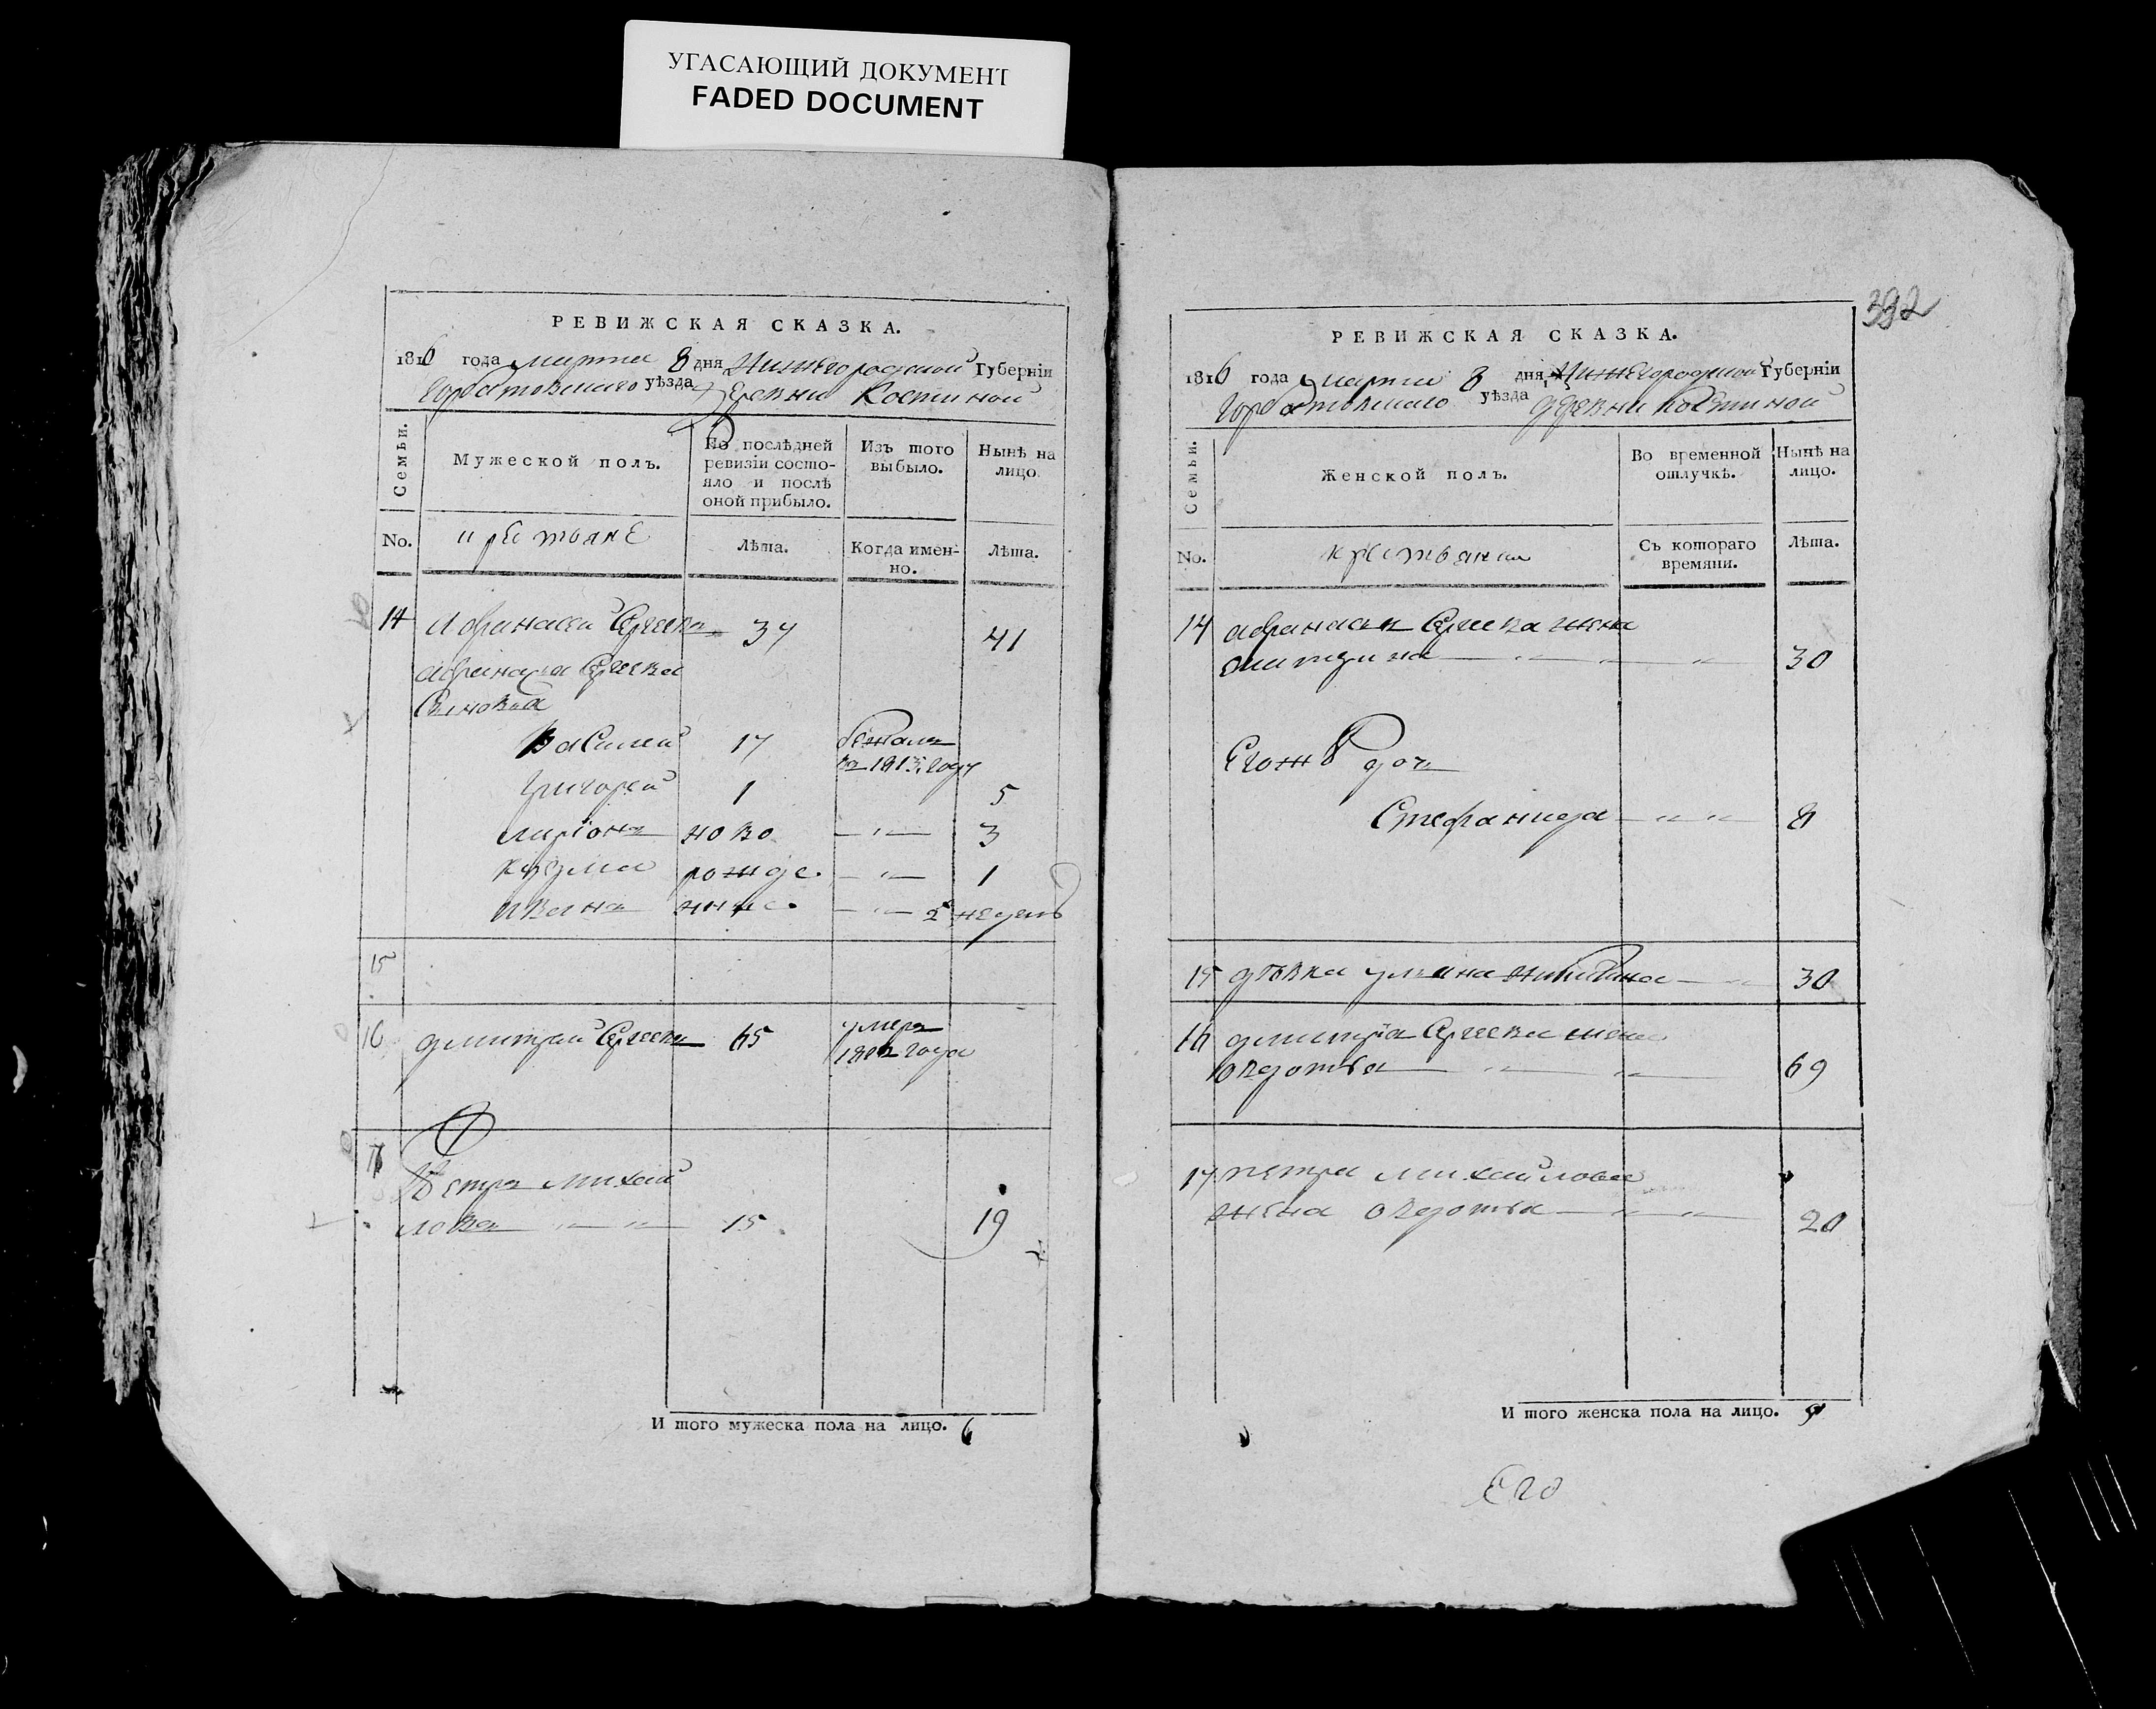 УГАСАЮЩИЙ ДОКУМЕНТ
FADED DOCUMENT
РЕВИЖСКАЯ СКАЗКА.
1816 года марта 8 дня Нижегородской Губернїи
Горбатовскаго уѣзда Деревни Костиной
Семьи.
Мужеской полъ.
По послѣдней ревизїи состо-
яло и послѣ
оной прибыло.
Изъ того
выбыло.
Нынѣ на
лицо.
No.
крестьяне
Лѣта.
Когда имен-
но.
Лѣта.
14 Афанасей Сергеевъ 37 41
Афанасья Сергеева
Сыновья
Василей 17 бежалъ
въ 1813 году
Григорей 1 5
Ларіонъ ново 3
Кузма рожде. 1
Иванъ нные. 2 недель
15
16 Дмитрей Сергеевъ 65 умеръ
1812 года
17 Петръ Михай
ловъ 15 19
И того мужеска пола на лицо. 6
332
РЕВИЖСКАЯ СКАЗКА.
1816 года марта 8 дня, Нижегородской Губернїи
Горбатовскаго уѣзда деревни Костиной
Семьи.
Женской полъ.
Во временной
отлучкѣ.
Нынѣ на
лицо.
No.
крестьянки
Съ котораго
времяни.
Лѣта.
14 Афанасья Сергеева жена
30
Егожъ дочь
Стефанида 8
15 девка Ульяна 30
16 Дмитрїя Сергеева жена
Овдотья 69
17 Петра Михайлова
жена Овдотья 20
И того женска пола на лицо. 5
Его